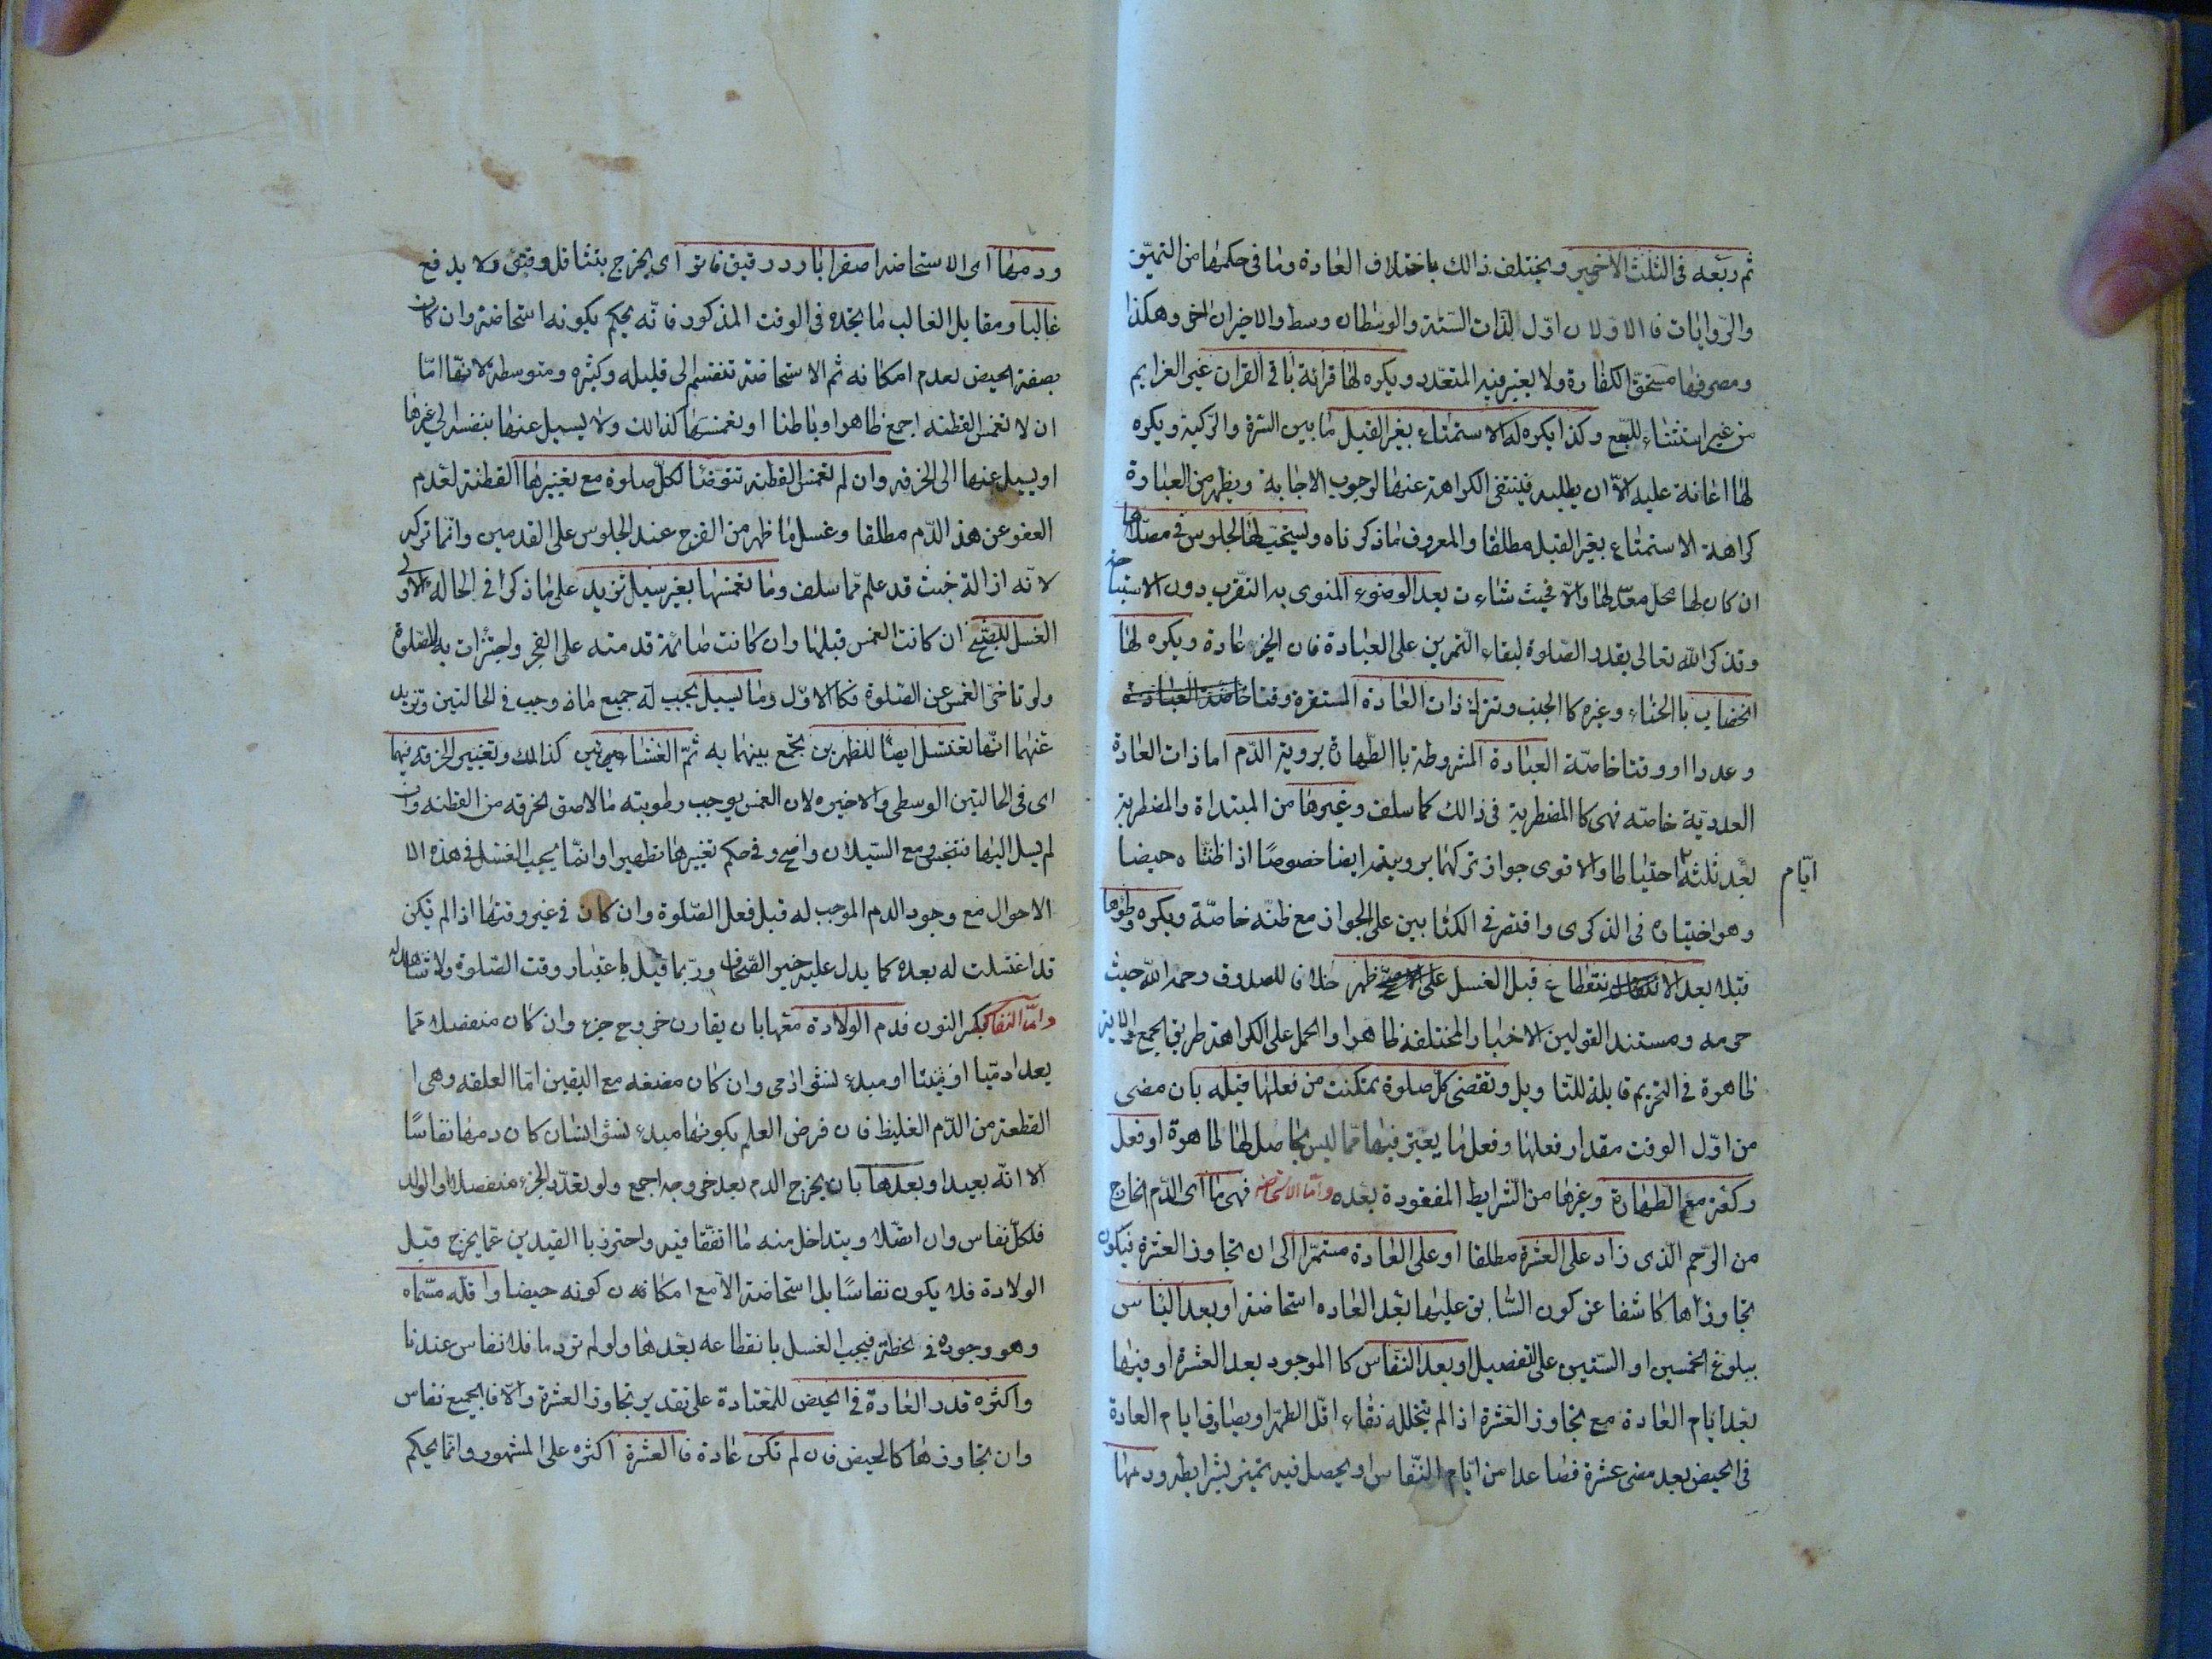 ثم ربعه فى الثلث الاخير ويختلف ذالك باختلاف العادة وما فى حكمها من التميّز
والرّوايات فالاوّلان اوّل لذات الستّة والوسطان وسط والاخيران اخر وهكذا
ومصرفها مستحقّ الكفارة ولا يعتبر فيه المتعدد ويكره لها قرائة باقى القران غير العزايم
من غير استثناء للسّبع وكذا يكره له الاستمتاع بغير القبل مّا بين السّرة والرّكبة ويكره
لها اعانة عليه الاّ ان يطلبه فينتفى الكراهة عنها لوجوب الاجابة ويظهر من العبارة
كراهة الاستمتاع بغير القبل مطلقا والمعروف ما ذكرناه ويستحبّ لها الجلوس فى مصلّاها
ان كان لها محل معدّ لها والاّ فحيث شاءت بعد الوضوء المنوى به التقرب دون الاستباحة
وتذكر الله تعالى بقدر الصّلوة لبقاء التمرين على العبادة فان الخير عادة ويكره لها
الخضاب باالحناء وغيره كاالجنب وتترك ذات العادة المستقرة وقتا خاصّة العبادة
وعددا او وقتا خاصّة العبادة المشروطة باالطّهارة بروية الدّم اما ذات العادة
العدديّة خاصّه فهى كاالمضطربة فى ذالك كما سلف وغيرها من المبتداة والمضطربة
بعد ثلثة احتياطا والاقوى جواز تركهما برويتهما ايضا خصوصًا اذا ظنّتاه حيضا
ايّام
وهو اختياره فى الذكرى واقتصر فى الكتابين على الجواز مع ظنّه خاصّة ويكره وطؤها
قبلا بعد الانقطاع قبل الغسل على الاظهر خلافا للصدوق رحمه الله حيث
حرمه ومستند القولين الاخبار المختلفه ظاهرا والحمل على الكراهة طريق الجمع والاية
ظاهرة فى التحريم قابلة للتاويل وتقضى كلّ صلوة تمكنت من فعلها قبله بان مضى
من اوّل الوقت مقدار فعلها وفعل ما يعتبر فيها ممّا ليس بحاصل لها طاهرة او فعل
ركعة مع الطهارة وغيرها من الشرايط المفقودة بعده وامّا الاستحاضه فهى ما اى الدّم الخارج
من الرّحم الّذى زاد على العشرة مطلقا او على العادة مستمرّا الى ان تجاوز العشرة فيكون
تجاوزها كاشفا عن كون السّابق عليها بعد العاده استحاضة او بعد الياس
ببلوغ الخمسين او السّتين على التفصيل او بعد النّفاس كاالموجود بعد العشرة او فيها
بعد ايّام العادة مع تجاوز العشرة اذا لم يتخلله نقاء اقلّ الطهر او يصادف ايام العادة
فى الحيض بعد مضى عشرة فصاعدا من ايّام النّفاس او يحصل فيه تميز بشرايطه ودمها
ودمها اى الاستحاضه اصفر بارد رقيق فاتر اى يخرج بتثاقل وفتور ولا يدفع
غالبا ومقابل الغالب ما تجده فى الوقت المذكور فانّه يحكم بكونه استحاضة وان كان
بصفة الحيض لعدم امكانه ثم الاستحاضة تنقسم الى قليله وكثيره ومتوسطة لانّها امّا
ان لا تغمس القطنه اجمع ظاهرا وباطنا او تغمسها كذالك ولا يسيل عنها بنفسه الى غيرها
او يسيل عنها الى الخرقه وان لم تغمس القطنه تتوضّا لكلّ صلوة مع تغييرها القطنة لعدم
العفو عن هذ الدّم مطلقا وغسل ما ظهر من الفرج عند الجلوس على القدمين وانّما تركه
لانّه ازالة خبث قد علم ممّا سلف وما تغمسها بغير سيل تزيد على ما ذكر فى الحالة الاولى
الغسل للصّبح ان كانت الغمس قبلها وان كانت صائمة قدمته على الفجر واجتزات به للصّلوة
ولو تاخرّ الغمس عن الصّلوة فكاالاوّل وما يسيل يجب له جميع ما وجب فى الحالتين وتزيد
عنهما انّها تغتسل ايضًا للظهرين تجمع بينهما به ثمّ العشائين كذالك وتغيير الخرقه فيهما
اى فى الحالتين الوسطى والاخيره لان الغمس يوجب رطوبته ما لاصق الخرقه من القطنه وان
لم يسل اليها فتنجس ومع السّيلان واضح وفى حكم تغييرها تطهيرا وانّما يجب الغسل فى هذه الا
الاحوال مع وجود الدم الموجب له قبل فعل الصّلوة وان كان فى غير وقتها اذا لم تكن
قد اغتسلت له بعده كما يدل عليه خبر الصّحاف وربّما قيل باعتبار وقت الصّلوة ولا شاهد له
وامّا النفاس بكسر النون فدم الولادة معها بان يقارن خروج جزء وان كان منفصلا ممّا
يعدّ ادميّا او ميّتا او مبدء نشو ادمى وان كان مضغه مع اليقين امّا العلقه وهى ا
القطعة من الدّم الغليظ فان فرض العلم بكونها مبدء نشو انسان كان دمها نفاسًا
الا انّه بعيد او بعدها بان يخرج الدم بعد خروجه اجمع ولو تعدّد الجزء منفصلا او الولد
فلكلّ نفاس وان اتصّلا ويتداخل منه ما اتفّقا فيه واحترز باالقيدين عمّا يخرج قبل
الولادة فلا يكون نفاسًا بل استحاضة الاّ مع امكان كونه حيضا واقله مسّماه
وهو وجوده فى لحظة فيجب الغسل بانقطاعه بعدها ولو لم تر دما فلا نفاس عندنا
واكثره قدر العادة فى الحيض للمعتادة على تقدير تجاوز العشرة والاّ فالجميع نفاس
وان تجاوزها كالحيض فان لم تكن عادة فاالعشرة اكثره على المشهور وانّما يحكم